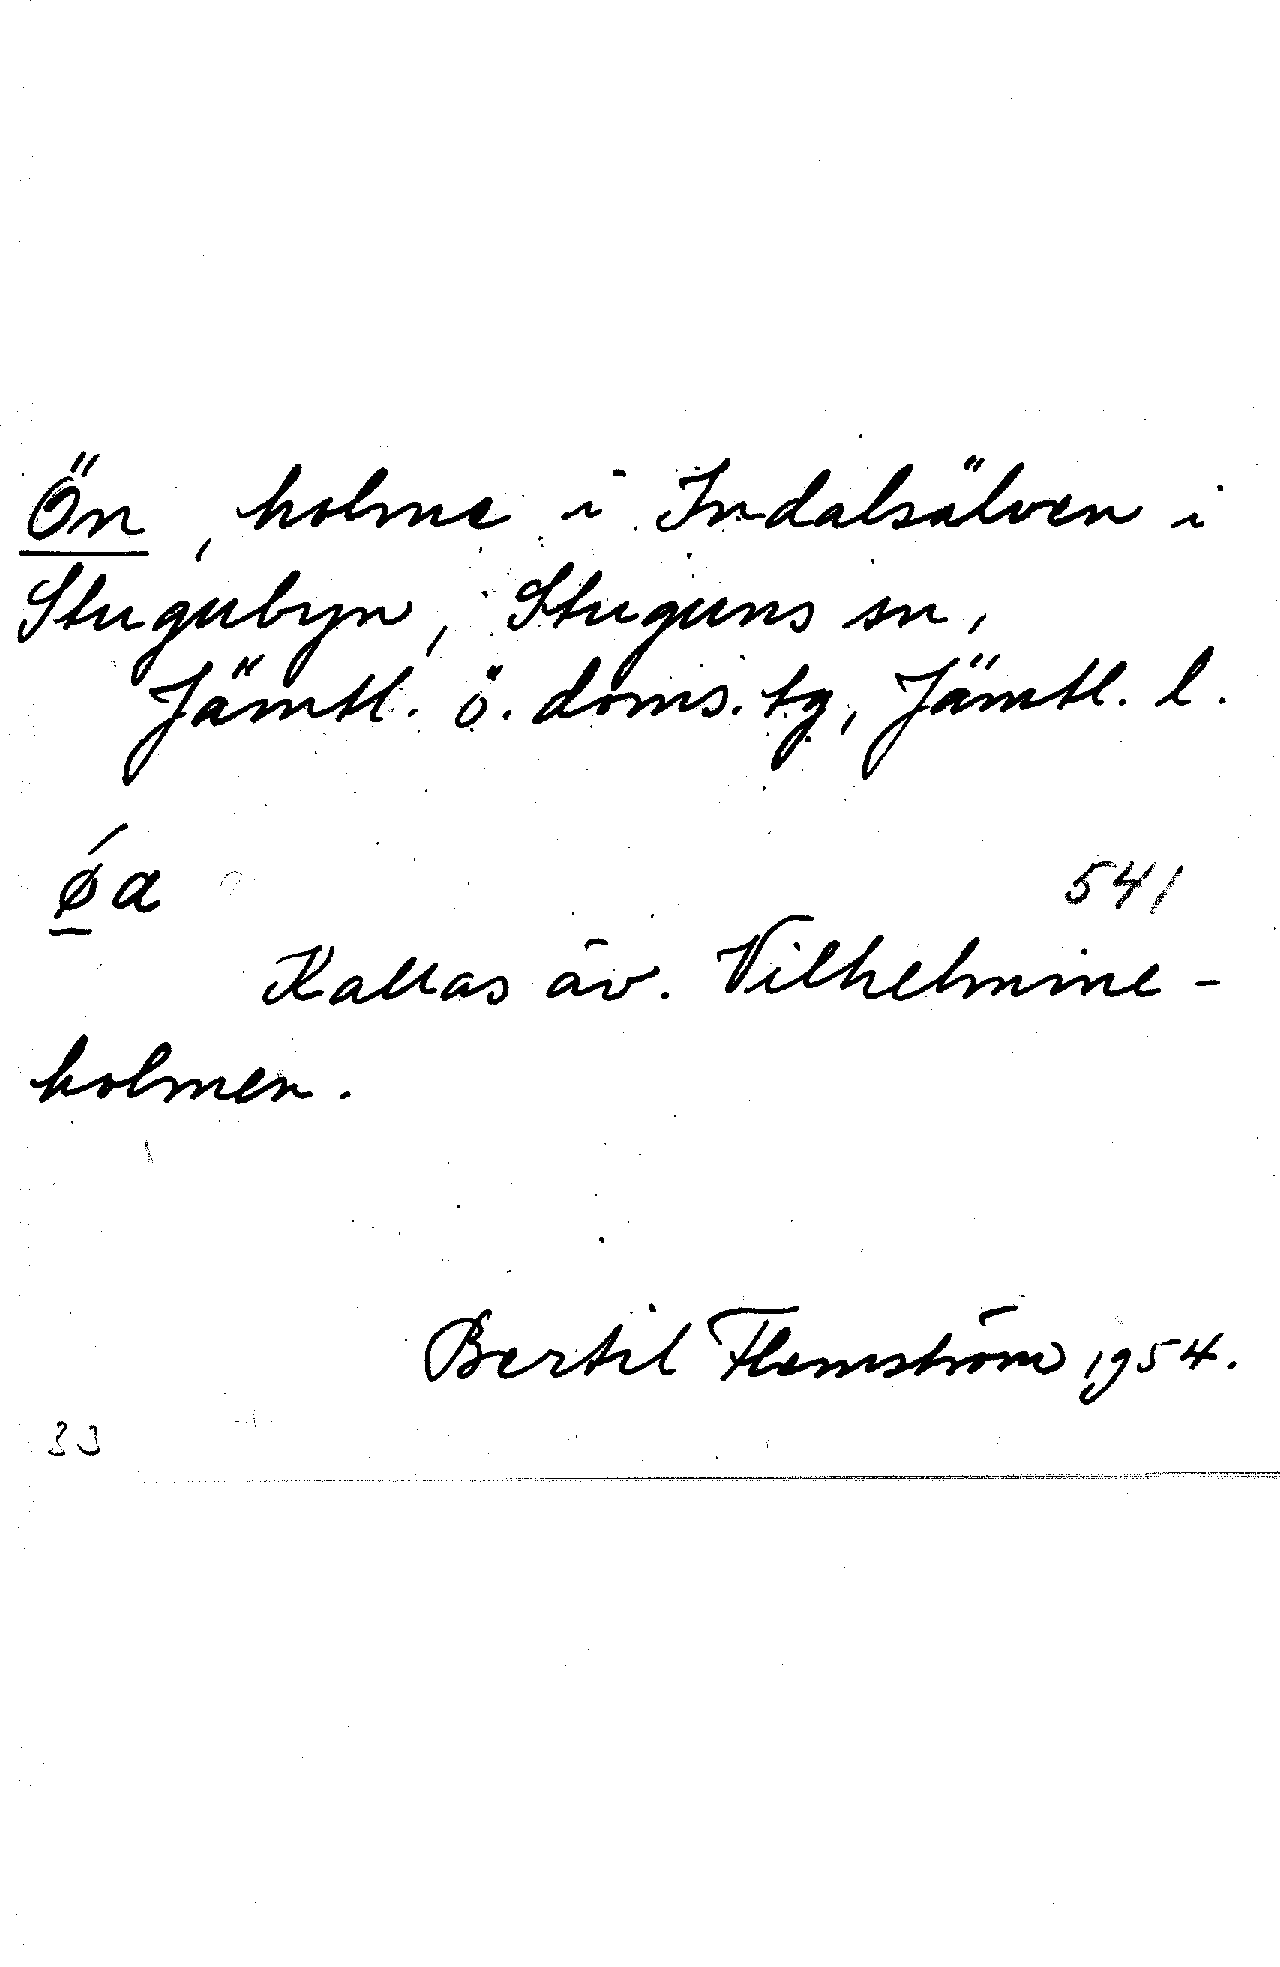 Ön, holme i Indalsälven i
Stugubyn, Stuguns sn,
Jämtl. ö. doms. tg, Jämtl. l.
ǿ̲a 541
Kallas äv. Vilhelmine-
holmen.
Bertil Flemström 1954.
33